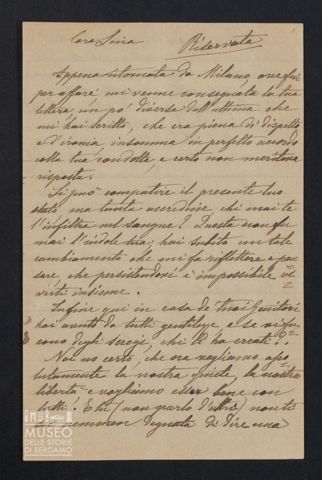 Cara Lina Riservata
Appena ritornata da Milano, ove fui
per affari mi venne consegnata la tua
lettera, un po' diversa dall'ultima che
mi hai scritto, che era piena di dispetto
e d'ironia insomma in perfetto accordo
colla tua condotta, e certo non meritava
risposta.
Si può compatire il presente tuo
stato ma tanta acredine chi mai te
l'infiltra nel sangue? Questa non fu
mai l'indole tua; hai subito un tale
cambiamento che mi fa riflettere e pen
sare che persistendoci è impossibile vi=
versi insieme.
Infine qui in casa de' tuoi Genitori
hai avuto da tutti gentilezze, e se vi fu
rono degli screzi, chi li ha creati?..
Noi no certo, che ora vogliamo
assolutamente la nostra quiete, la nostra
libertà e vogliamo esser bene con
tutti! E tu (non parlo d'altri) non te
degnata di dire una
MUSEO
DELLE STORIE
DI BERGAMO